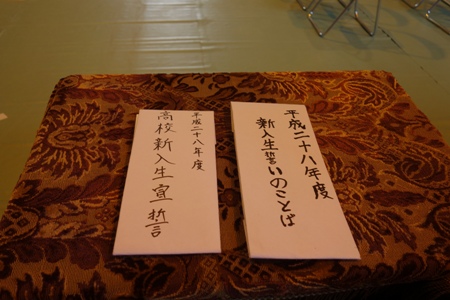 平成二十八年度
新入生誓いのことば
平成二十八年度
高校新入生宣誓